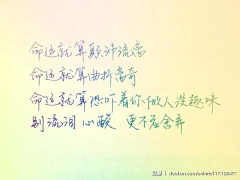 命运就算颠沛流离
命运就算曲折离奇
命运就算恐吓着你做人没趣味
别流泪 心酸 更不应舍弃